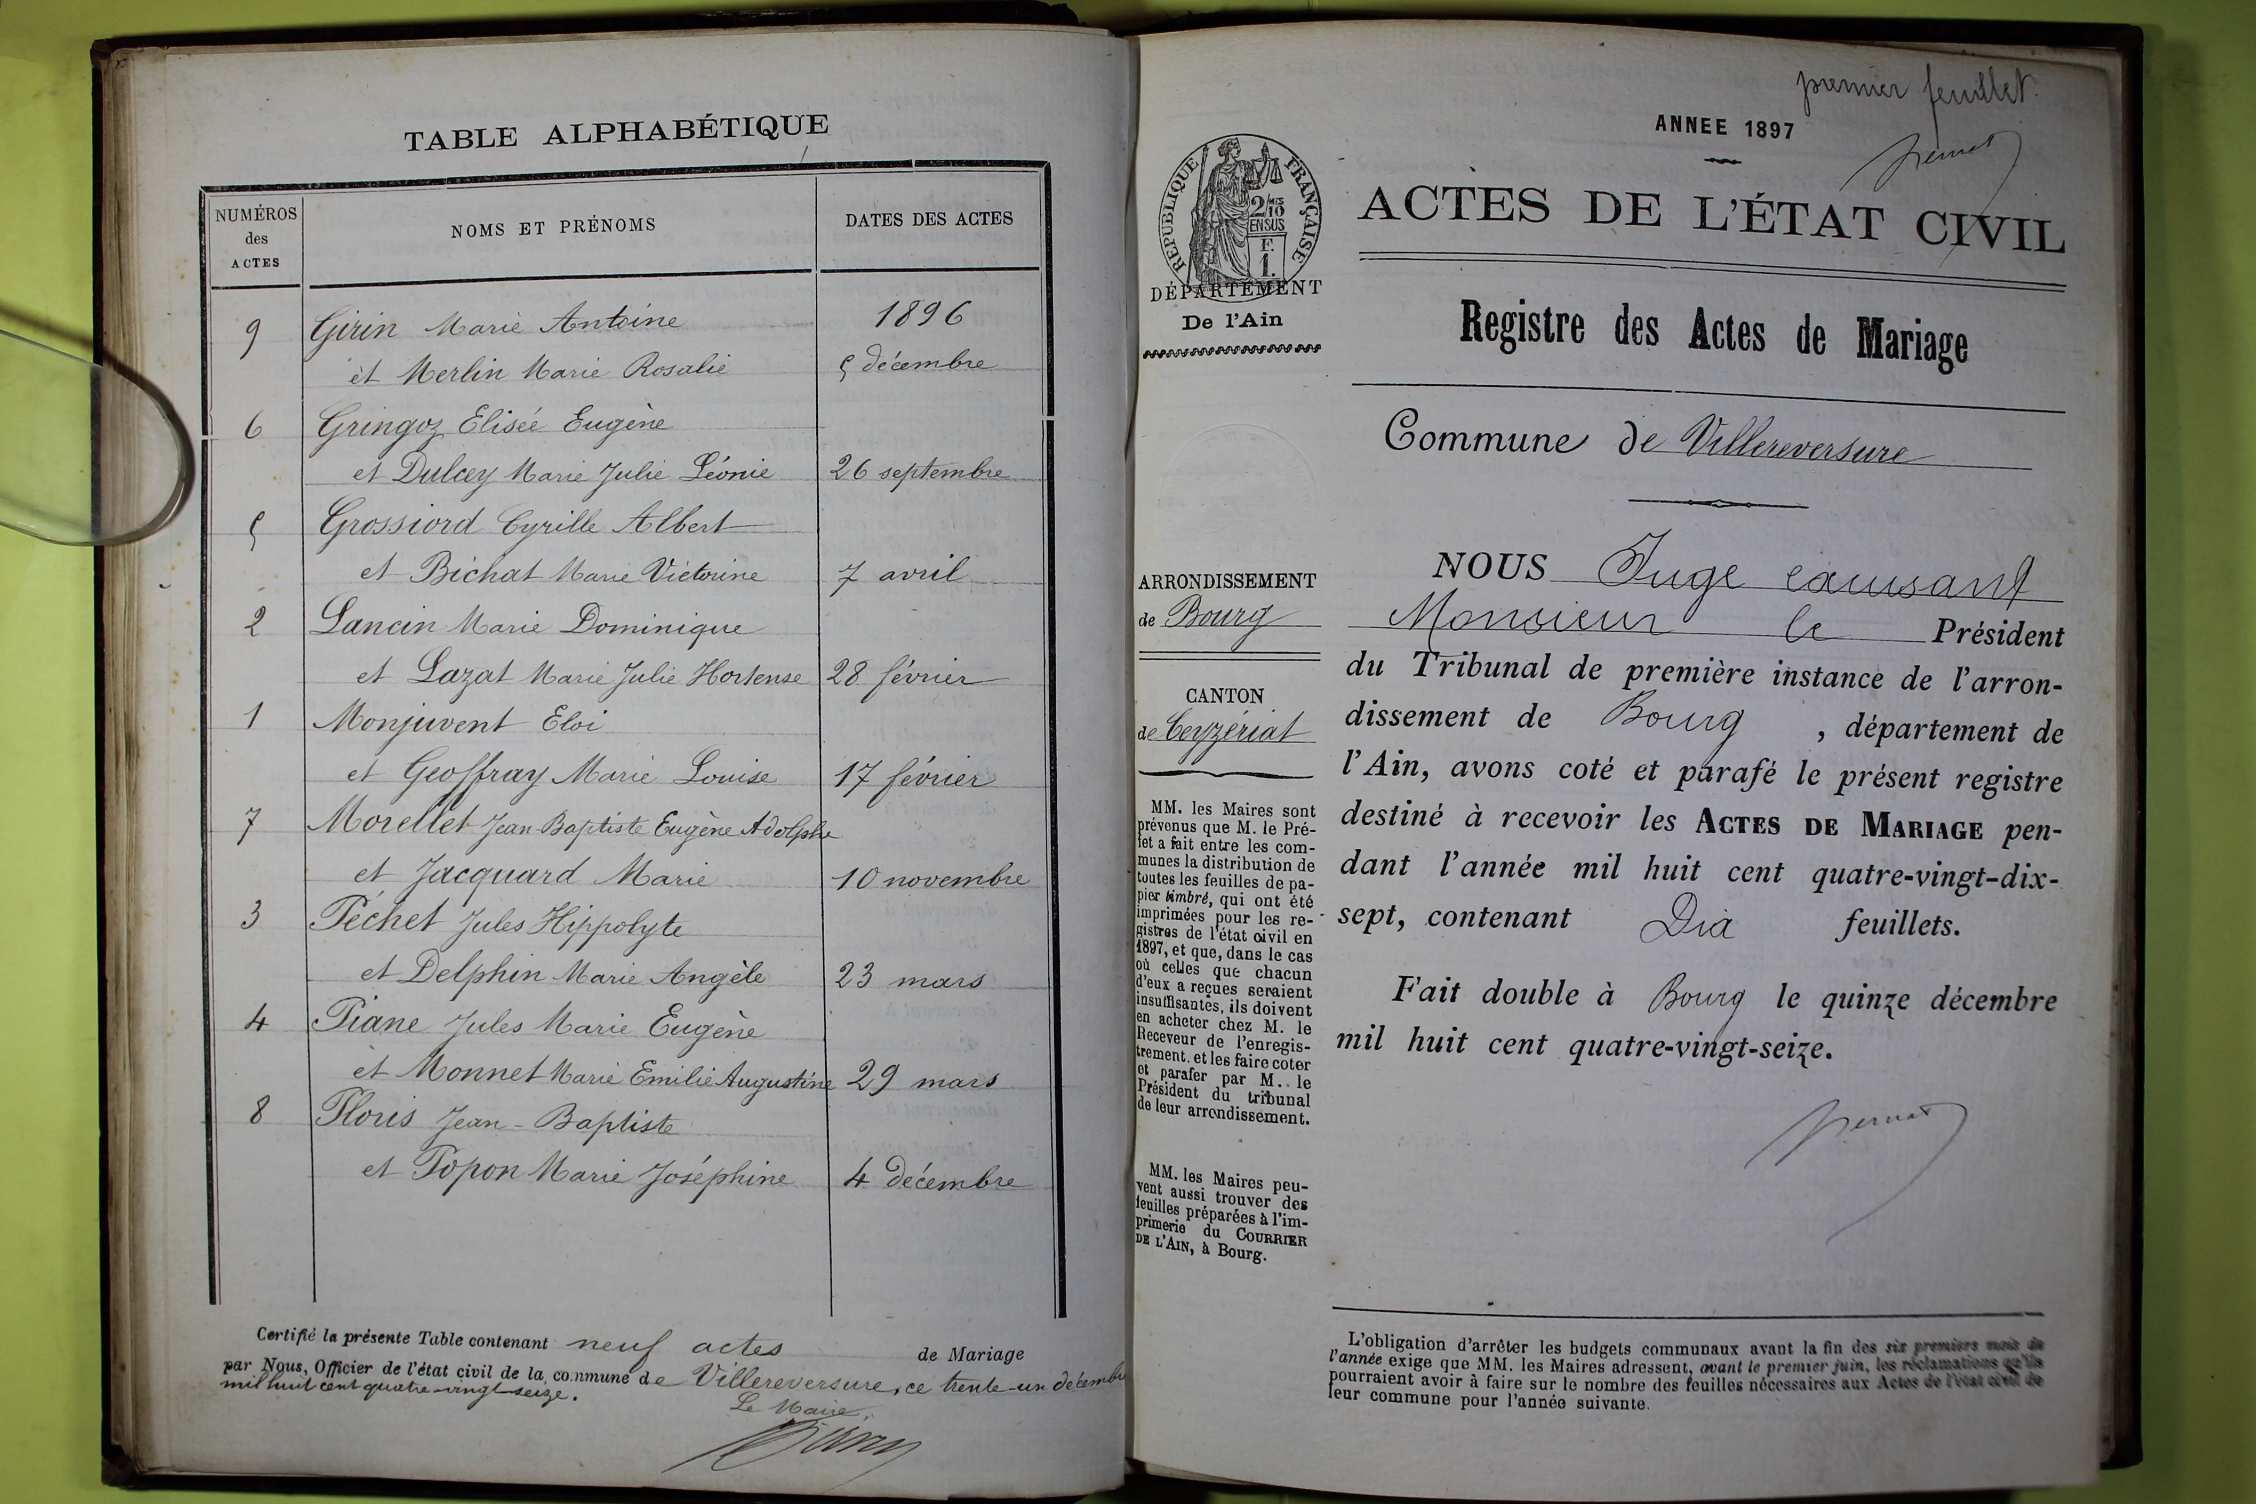 TABLE ALPHABÉTIQUE
NUMÉROS
des
ACTES
NOMS ET PRÉNOMS
DATES DES ACTES
1896
9 Girin Marie Antoine
et Merlin Marie Rosalie 5 décembre
6 Gringoz Elisée Eugène
et Dulcey Marie Julie Léonie 26 septembre
5 Grossiord Cyrille Albert
et Bichat Marie Victorine 7 avril
2 Lancin Marie Dominique
et Lazat Marie Julie Hortense 28 février
1 Monjuvent Eloi
et Geoffray Marie Louise 17 février
7 Morellet Jean Baptiste Eugène Adolphe
et Jacquard Marie 10 novembre
3 Péchet Jules Hippolyte
et Delphin Marie Angèle 23 mars
4 Piane Jules Marie Eugène
et Monnet Marie Emilie Augustine 29 mars
8 Ploris Jean-Baptiste
et Popon Marie Joséphine 4 décembre
Certifié la présente Table contenant neuf actes de Mariage
par Nous, Officier de l'état civil de la commune de Villereversure, ce trente-un décembre
mil huit cent quatre-vingt-seize.
Le Maire,
premier feuillet.
ANNEE 1897
RÉPUBLIQUE FRANÇAISE
2/10 EN SUS
F.
1.
ACTES DE L'ÉTAT CIVIL
DÉPARTEMENT
De l'Ain
Registre des Actes de Mariage
Commune de Villereversure
ARRONDISSEMENT
de Bourg
CANTON
de Ceyzériat
MM. les Maires sont
prévenus que M. le Pré-
fet a fait entre les com-
munes la distribution de
toutes les feuilles de pa-
pier timbré, qui ont été
imprimées pour les re-
gistres de l'état civil en
1897, et que, dans le cas
où celles que chacun
d'eux a reçues seraient
insuffisantes, ils doivent
en acheter chez M. le
Receveur de l'enregis-
trement, et les faire coter
et parafer par M. le
Président du tribunal
de leur arrondissement.
MM. les Maires peu-
vent aussi trouver des
feuilles préparées à l'im-
primerie du COURRIER
DE L'AIN, à Bourg.
NOUS Juge
Monsieur le Président
du Tribunal de première instance de l'arron-
dissement de Bourg, département de
l'Ain, avons coté et parafé le présent registre
destiné à recevoir les ACTES DE MARIAGE pen-
dant l'année mil huit cent quatre-vingt-dix-
sept, contenant Dix feuillets.
Fait double à Bourg le quinze décembre
mil huit cent quatre-vingt-seize.
L'obligation d'arrêter les budgets communaux avant la fin des six premiers mois de
l'année exige que MM. les Maires adressent, avant le premier juin, les réclamations qu'ils
pourraient avoir à faire sur le nombre des feuilles nécessaires aux Actes de l'état civil de
leur commune pour l'année suivante.